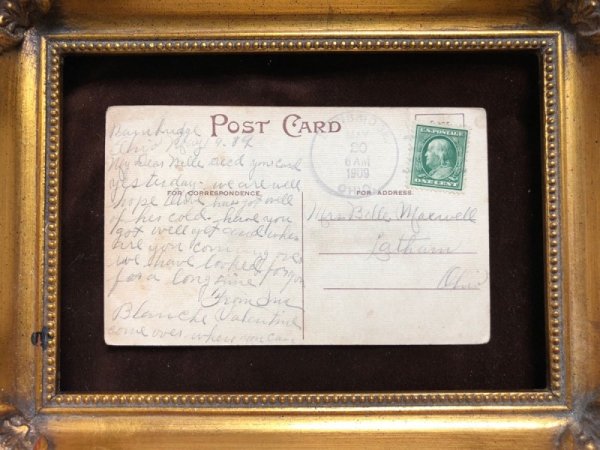 POST CARD
Bainbridge
Ohio May
My dear recd your card
yesterday. we are well
FOR CORRESPONDENCE.
hope has got well
of his cold. have you
got well yet and when
are you coming over
we have looked for you
for a long time
From
Blanche Valentine
come over when you can
20
6 AM
1909
OHIO
U.S. POSTAGE
ONE CENT
FOR ADDRESS.
Mrs. Belle Maxwell
Latham
Ohio